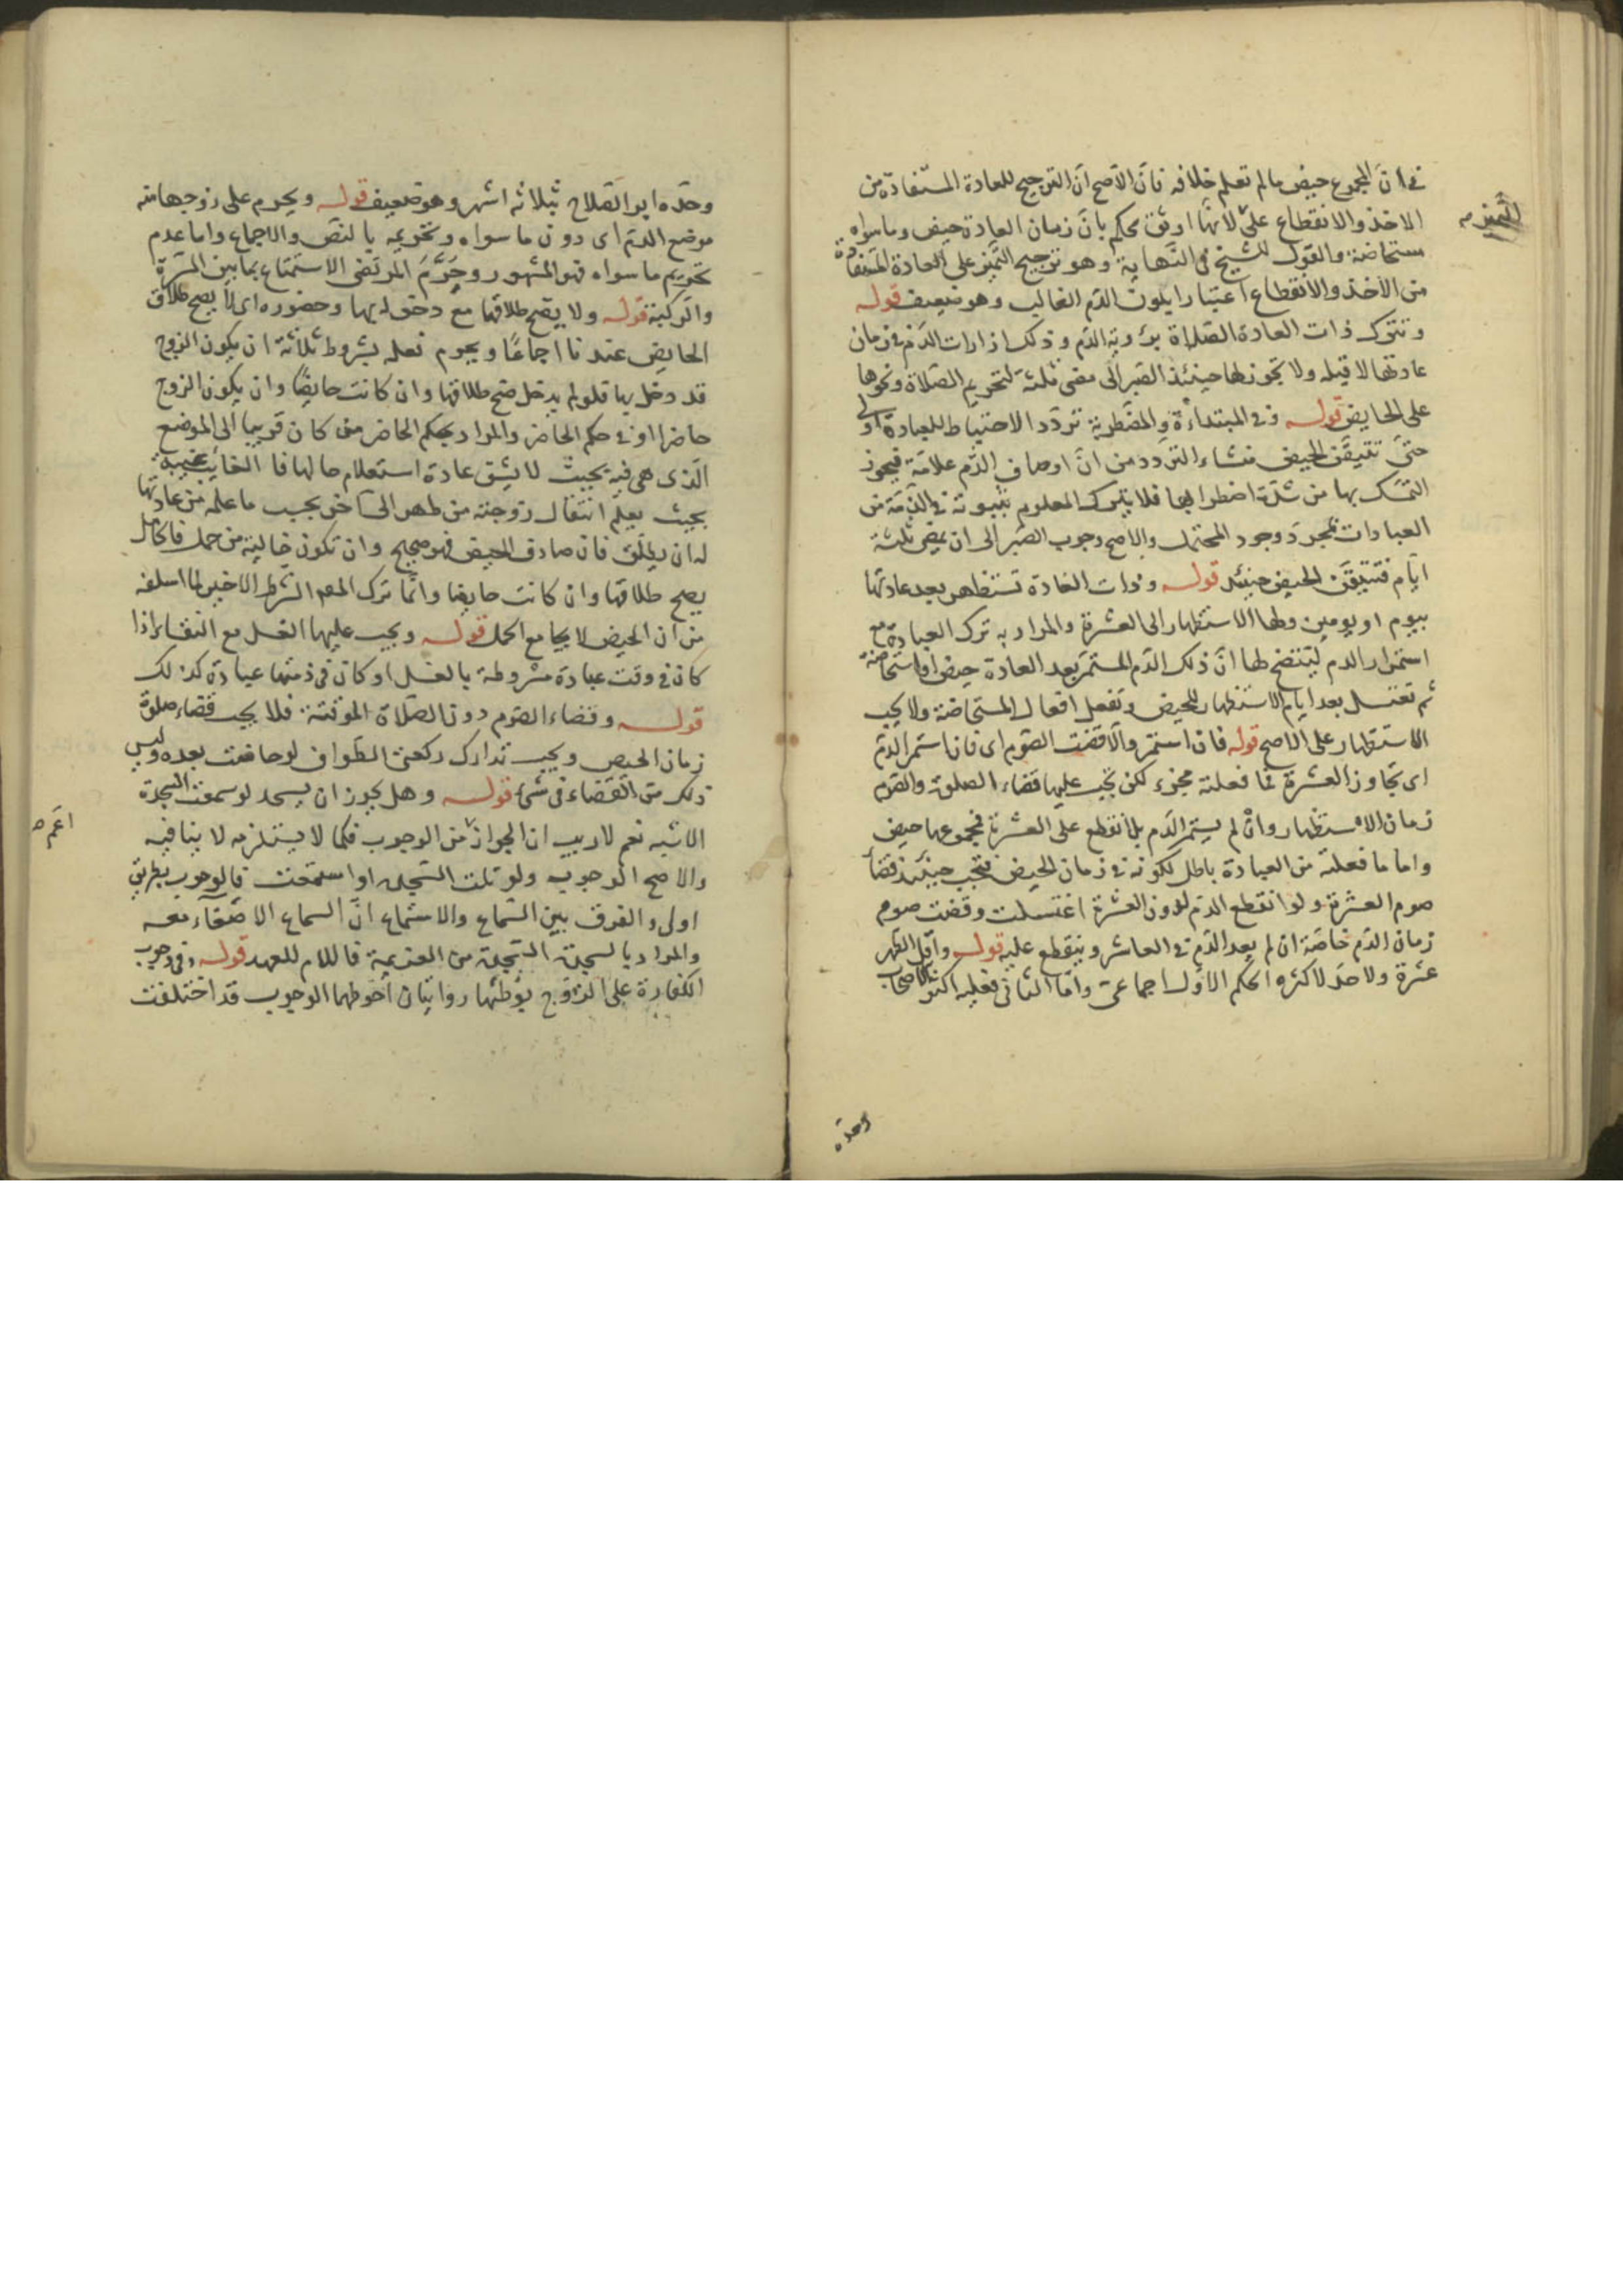 في ان المجموع حيض ما لم تعلم خلافه فان الاصح ان الترجيح للعادة المستفادة من
الاخذ والانقطاع على لانها اوثق محكم بان زمان العادة حيض وما سواه
التميز صح
ستحاضة والقول للشيخ في النهاية وهو ترجيح التميز على العادة المستفادة
من الاخذ والانقطاع اعتبارا بلون الدم الغالب وهو ضعيف قوله
وتترك ذات العادة الصلاة برؤية الدم وذلك اذا رات الدم في زمان
عادتها لا قبله ولا يجوز لها حينئذ الصبر الى مضى ثلثة لتحريم الصلاة ونحوها
على الحايض قوله وفي المبتداءة والمضطربة تردد الاحتياط للعبادة اولى
حتى تتيقن الحيض منشاء التردد من ان اوصاف الدم علامة فيجوز
التمسك بها من شدة اضطرابها فلا يترك المعلوم ثبوته في الذمة من
العبادات بمجرد وجود المحتمل والاصح وجوب الصبر الى ان يمضى ثلثة
ايام فتتيقن الحيض حينئذ قوله وذات العادة تستظهر بعد عادتها
بيوم او يومين ولها الاستظهار الى العشرة والمراد به ترك العبادة مع
استمرار الدم ليتضح لها ان ذلك الدم المستمر بعد العادة حيض او استحاضة
ثم تغتسل بعد ايام الاستظهار للحيض وتفعل افعال المستحاضة ولا يجب
الاستظهار على الاصح قوله فان استمر والا قضت الصوم اى فان استمر الدم
اى تجاوز العشرة فما فعلته مجزء لكن يجب عليها قضاء الصلوة والصوم
زمان الاستظهار وان لم يستمر الدم بل انقطع على العشرة فمجموعها حيض
واما ما فعلته من العبادة باطل لكونه في زمان الحيض فيجب حينئذ قضا
صوم العشرة ولو انقطع الدم لدون العشرة اغتسلت وقضت صوم
زمان الدم خاصة ان لم يعد الدم في العاشر وينقطع عليه قوله واقل الطهر
عشرة ولا حد لاكثره الحكم الاول اجماعى واما الثانى فعليه اكثر الاصحاب
وحده
وحده ابو الصلاح بثلاثه اشهر وهو ضعيف قوله ويحرم على زوجها منه
موضع الدم اى دون ما سواه وتحريمه بالنص والاجماع واما عدم
تحريم ما سواه فهو المشهور وحرم المرتضى الاستمتاع بما بين السرة
والركبة قوله ولا يصح طلاقها مع دخوله بها وحضوره اى لا يصح طلاق
الحايض عندنا اجماعا ويحرم فعله بشروط ثلاثة ان يكون الزوج
قد دخل بها فلو لم يدخل صح طلاقها وان كانت حايضا وان يكون الزوج
حاضرا او في حكم الحاضر والمراد بحكم الحاضر من كان قريبا الى الموضع
الذى هى فيه بحيث لا يشق عادة استعلام حالها فالغايب غيبة
بحيث يعلم انتقال زوجته من طهر الى آخر بحسب ما علمه من عادتها
له ان يطلق فان صادف الحيض فهو صحيح وان تكون خالية من حمل فالحامل
يصح طلاقها وان كانت حايضا وانما ترك المصـ الشرط الاخير لما اسلفه
من ان الحيض لا يجامع الحمل قوله ويجب عليها الغسل مع النقاء اذا
كان في وقت عبادة مشروطة بالغسل او كان في ذمتها عبادة كذلك
قوله وقضاء الصوم دون الصلاة الموقتة فلا يجب قضاء صلوة
زمان الحيض ويجب تدارك ركعتى الطواف لو حاضت بعده وليس
ذلك من القضاء في شئ قوله وهل يجوز ان يسجد لو سمعت السجدة
الاشبه نعم لا ريب ان الجواز من الوجوب فكما لا يستلزمه لا ينافيه
اعم صح
والاصح الوجوب ولو تلت السجدة او استمعت فالوجوب بطريق
اولى والفرق بين السماع والاستماع ان السماع لا اصغاء معه
والمراد بالسجدة السجدة من العزيمة فاللام للعهد قوله وفي وجوب
الكفارة على الزوج بوطئها روايتان احوطهما الوجوب قد اختلفت